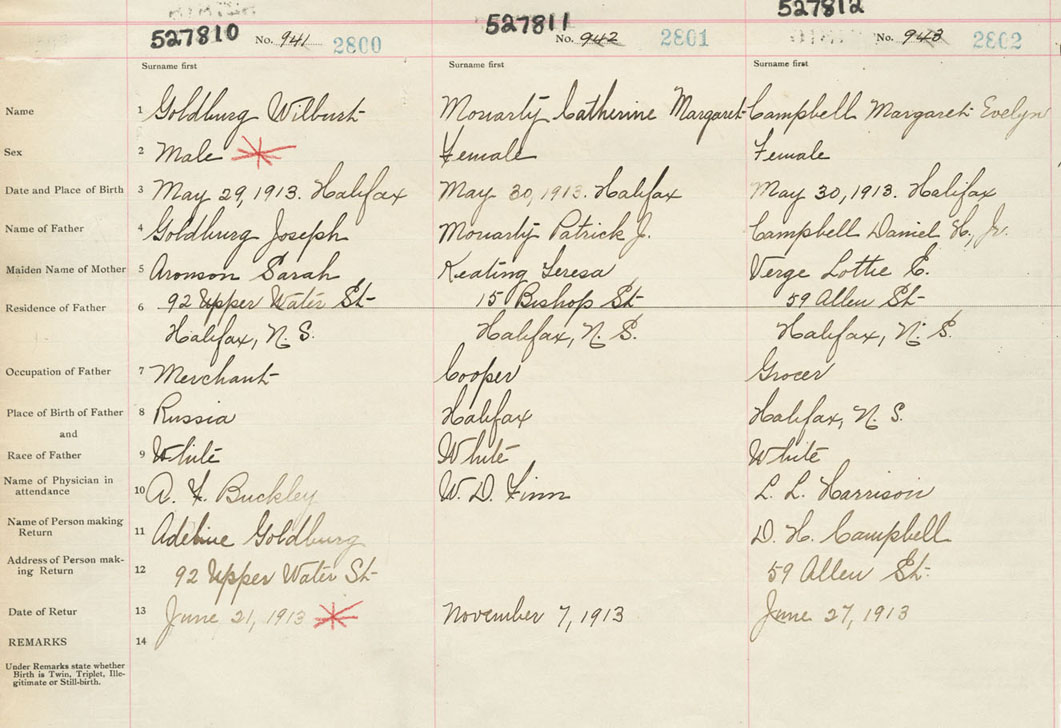 527810 No. 941 2800 527811 No. 942 2801 527812 No. 943 2802
Surname first Surname first Surname first
Name 1 Goldburg Wilburt Moriarty Catherine Margaret Campbell Margaret Evelyn
Sex 2 Male Female Female
Date and Place of Birth 3 May 29, 1913. Halifax May 30, 1913. Halifax May 30, 1913. Halifax
Name of Father 4 Goldburg Joseph Moriarty Patrick J. Campbell Daniel H., Jr.
Maiden Name of Mother 5 Aronson Sarah Keating Teresa Verge Lottie E.
Residence of Father 6 92 Upper Water St 15 Bishop St 59 Allen St
Halifax, N. S. Halifax, N. S. Halifax, N. S.
Occupation of Father 7 Merchant Cooper Grocer
Place of Birth of Father 8 Russia Halifax Halifax, N. S.
and
Race of Father 9 White White White
Name of Physician in
attendance 10 A. F. Buckley W. D. Finn L. L. Harrison
Name of Person making
Return 11 Adeline Goldburg D. H. Campbell
Address of Person mak-
ing Return 12 92 Upper Water St 59 Allen St.
Date of Retur 13 June 21, 1913 November 7, 1913 June 27, 1913
REMARKS 14
Under Remarks state whether
Birth is Twin, Triplet, Ille-
gitimate or Still-birth.